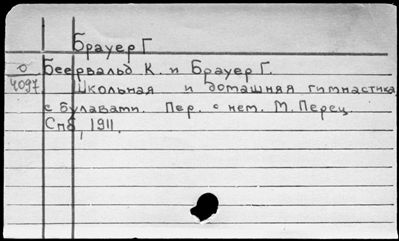 Брауер Г
О Беервальд К. и Брауер Г.
4097 Школьная и домашняя гимнастика
с булавами. Пер. с нем. М. Перец.
Спб, 1911.